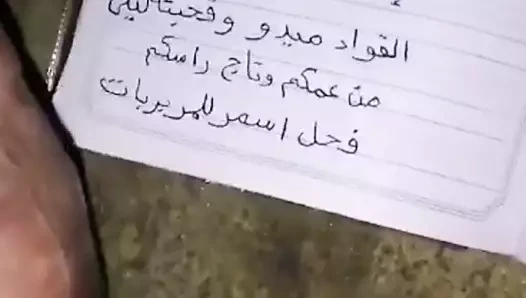 القواد ميدو وقحبتا ليلى
من عمكم وتاج راسكم
فحل اسمر للمربربات